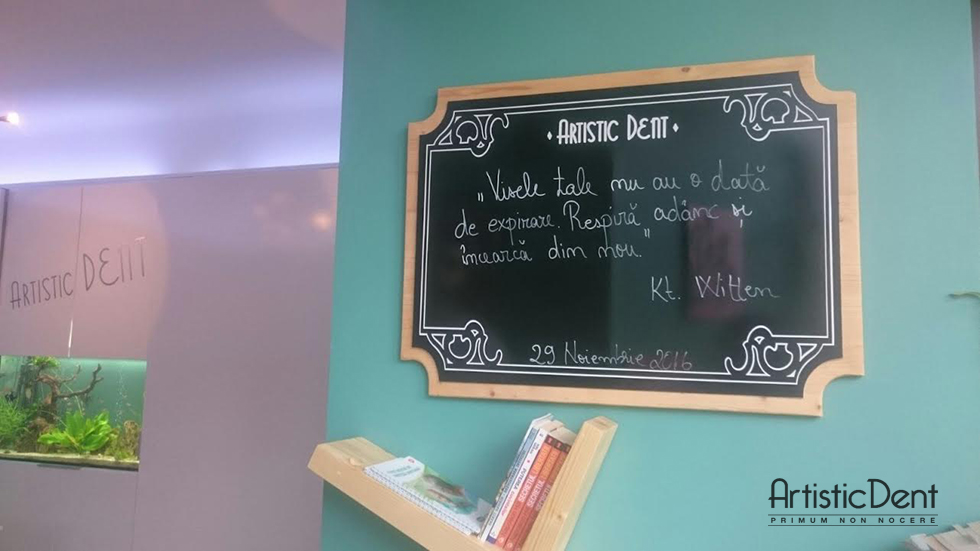 • ARTISTIC DENT •
„Visele tale nu au o dată
de expirare. Respiră adânc și
încearcă din nou."
Kt. Witten
29 Noiembrie 2016
ARTISTIC DENT
ArtisticDent
PRIMUM NON NOCERE